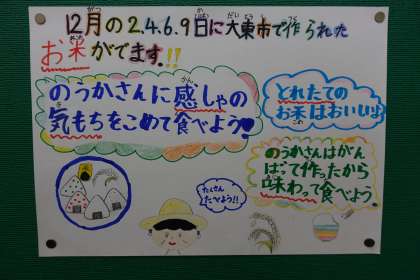 12月の2.4.6.9日に大東市で作られた
お米がでます!!
のうかさんに感しゃの
気もちをこめて食べよう
とれたての
お米はおいしいよ
のうかさんはがん
ばって作ったから
味わって食べよう
たくさん
たべよう!!